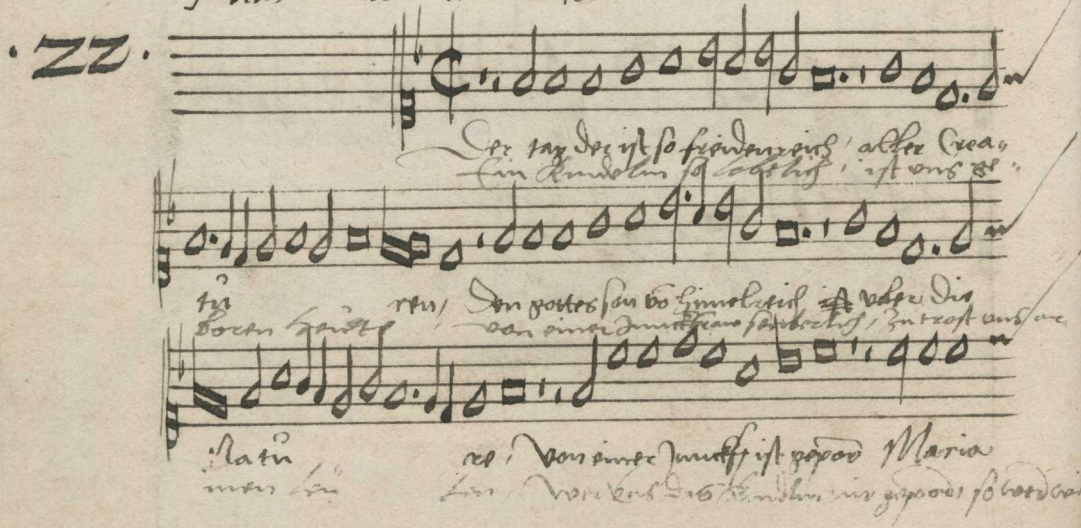 . ZZ .
Der tag der ist so freidenreich / aller Crea„
Ein kindelin so lobelich / ist uns ge„
tů ren / Den gottes son vō himelreich uber die
boren heüte von einer Junckfraw seüberlich / zu trost uns ar
Natů re / Von einer Junckfr ist geporn Maria
men leü ten / Wer uns das kindlin nit geporn so werd wir